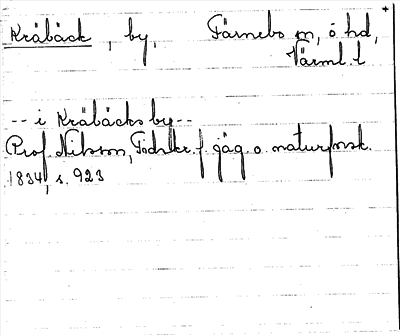 Kråbäck, by, Färnebo sn, ö hd,
Värml. l
-- i Kråbäcks by --
Prof. Nilsson, Tidskr. f. jäg. o. naturforsk.
1834, s. 923